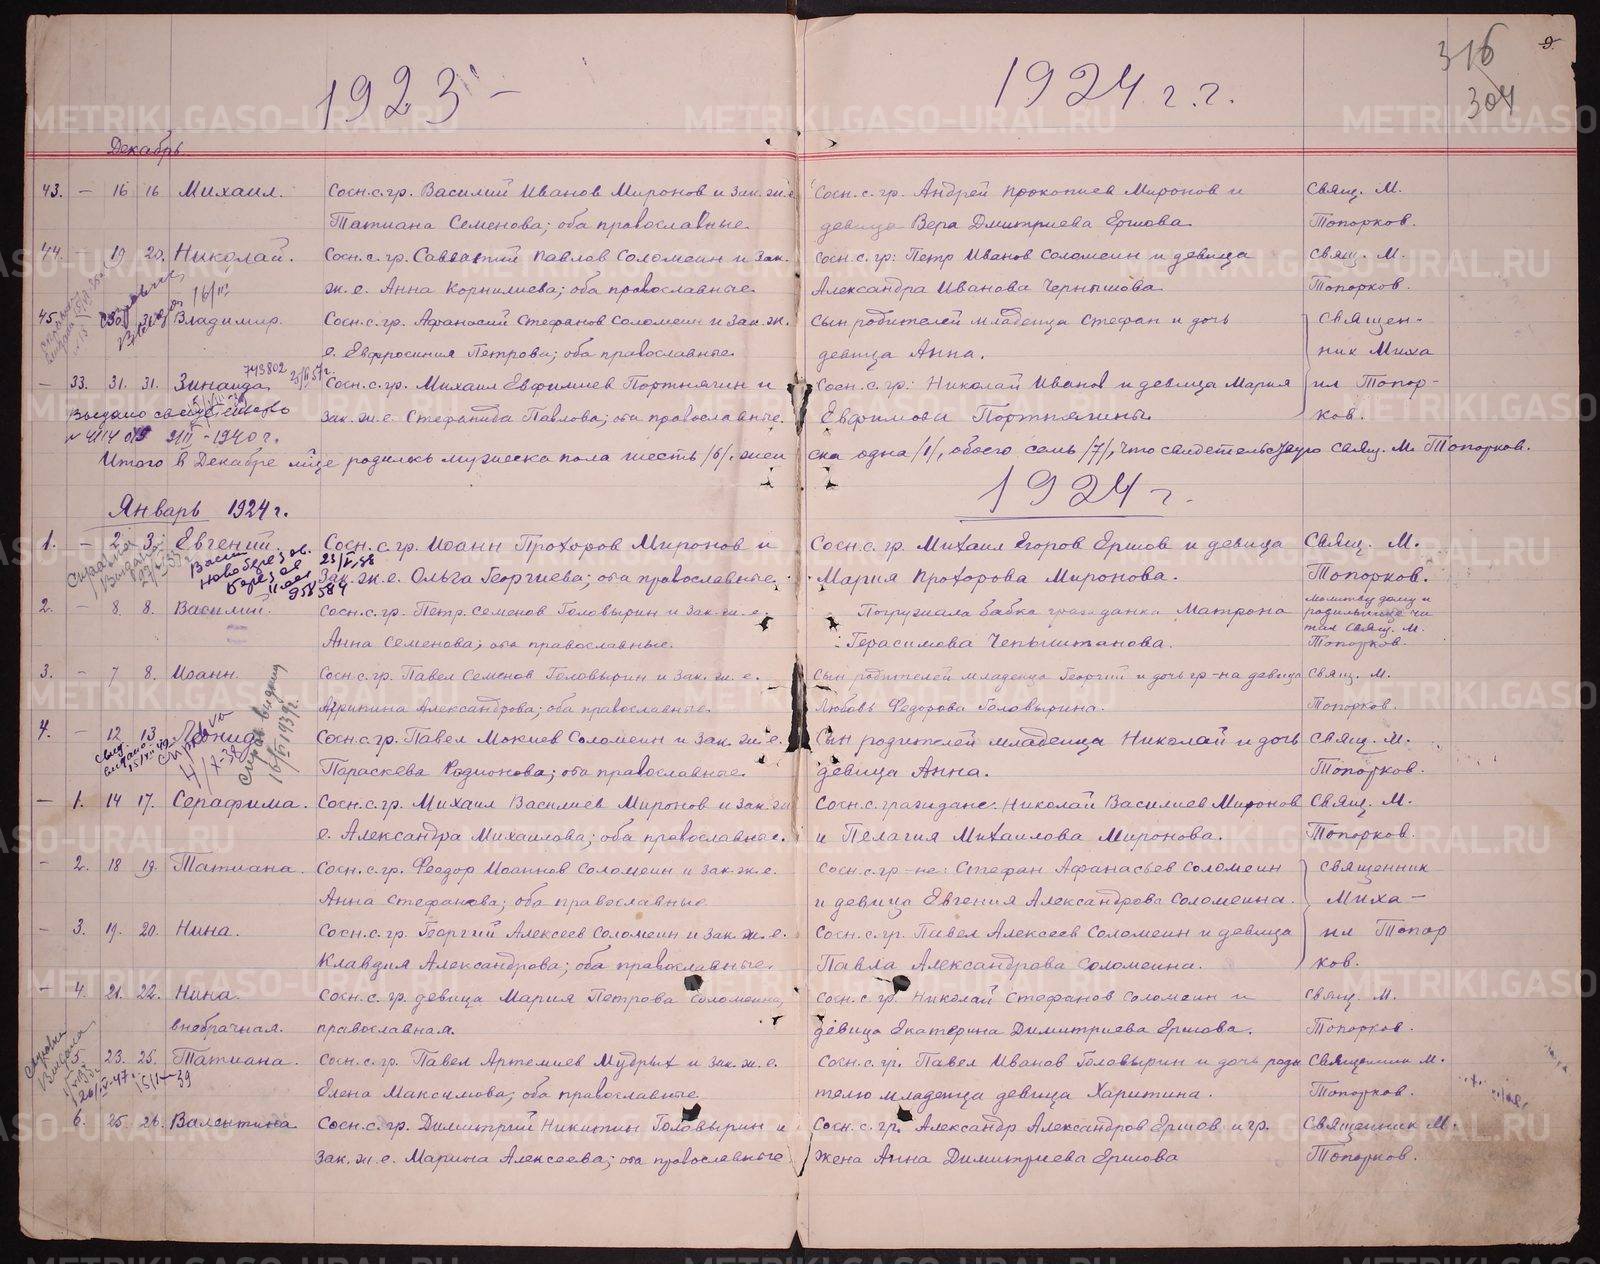 1923 - 1924 г.г.
316
304
9.
Декабрь.
43. — 16 16 Михаил. Сосн.с.гр. Василий Иванов Миронов и зак.ж.е. Сосн.с.гр. Андрей Прокопиев Миронов и Свящ. М.
Татиана Семенова; оба православные. девица Вера Димитриева Ершова. Топорков.
44. — 19 20. Николай. Сосн.с.гр. Савватий Павлов Соломеин и зак. Сосн.с.гр: Петр Иванов Соломеин и девица Свящ. М.
ж.е. Анна Корнилиева; оба православные. Александра Иванова Чернышова. Топорков.
16/III
45. Владимир. Сосн.с.гр. Афанасий Стефанов Соломеин и зак.ж. Сын родителей младенца Стефан и дочь Священ-
е. Евфросиния Петрова; оба православные. девица Анна. ник Миха
743802
— 33. 31. 31. Зинаида. Сосн.с.гр. Михаил Евфимиев Портнягин и Сосн.с.гр: Николай Иванов и девица Мария ил Топор-
Выдано свидетельство зак.ж.е. Стефанида Павлова; оба православные. Евфимова Портнягины. ков.
-1940 г.
Итого в Декабре м-це родилось мужеска пола шесть /6/, женска одна /1/, обоего семь /7/, что свидетельствую Свящ. М. Топорков.
Январь 1924 г. 1924 г.
1. — 2. 3. Евгений. Сосн.с.гр. Иоанн Прохоров Миронов и Сосн.с.гр. Михаил Егоров Ершов и девица Свящ. М.
зак.ж.е. Ольга Георгиева; оба православные. Мария Прохорова Миронова. Топорков.
958584
2. — 8. 8. Василий. Сосн.с.гр. Петр Семенов Головырин и зак.ж.е. Погружала бабка гражданка Матрона молитву дому и
родильнице чи
тал Свящ. М.
Анна Семенова; оба православные. Герасимова Чепыштанова. Топорков.
3. — 7 8. Иоанн. Сосн.с.гр. Павел Семенов Головырин и зак.ж.е. Сын родителей младенца Георгий и дочь гр-на девица Свящ. М.
Агрипина Александрова; оба православные. Любовь Федорова Головырина. Топорков.
4. — 12 13 Леонид. Сосн.с.гр. Павел Мокиев Соломеин и зак.ж.е. Сын родителей младенца Николай и дочь Свящ. М.
Параскева Родионова; оба православные. девица Анна. Топорков.
— 1. 14 17. Серафима. Сосн.с.гр. Михаил Василиев Миронов и зак.ж Сосн.с.граждане: Николай Василиев Миронов Свящ. М.
е. Александра Михаилова; оба православные. и Пелагия Михаилова Миронова. Топорков.
— 2. 18 19. Татиана. Сосн.с.гр. Феодор Иоаннов Соломеин и зак.ж.е. Сосн.с.гр-не: Стефан Афанасьев Соломеин Священник
Анна Стефанова; оба православные и девица Евгения Александрова Соломеина. Миха-
— 3. 19. 20. Нина. Сосн.с.гр. Георгий Алексеев Соломеин и зак.ж.е. Сосн.с.гр. Павел Алексеев Соломеин и девица ил Топор
Клавдия Александрова; оба православные. Павла Александрова Соломеина. ков.
— 4. 21. 22. Нина. Сосн.с.гр. девица Мария Петрова Соломеина, Сосн.с.гр. Николай Стефанов Соломеин и Свящ. М.
внебрачная. православная. девица Екатерина Димитриева Ершова. Топорков.
5. 23. 25. Татиана. Сосн.с.гр. Павел Артемиев Мудрых и зак.ж.е. Сосн.с.гр. Павел Иванов Головырин и дочь роди Священник М.
Елена Максимова; оба православные. телю младенца девица Харитина. Топорков.
6. 25. 26. Валентина Сосн.с.гр. Димитрий Никитин Головырин и Сосн.с.гр. Александр Александров Ершов и гр. Священник М.
зак.ж.е. Марина Алексеева; оба православные жена Анна Димитриева Ершова Топорков.
METRIKI.GASO-URAL.RU